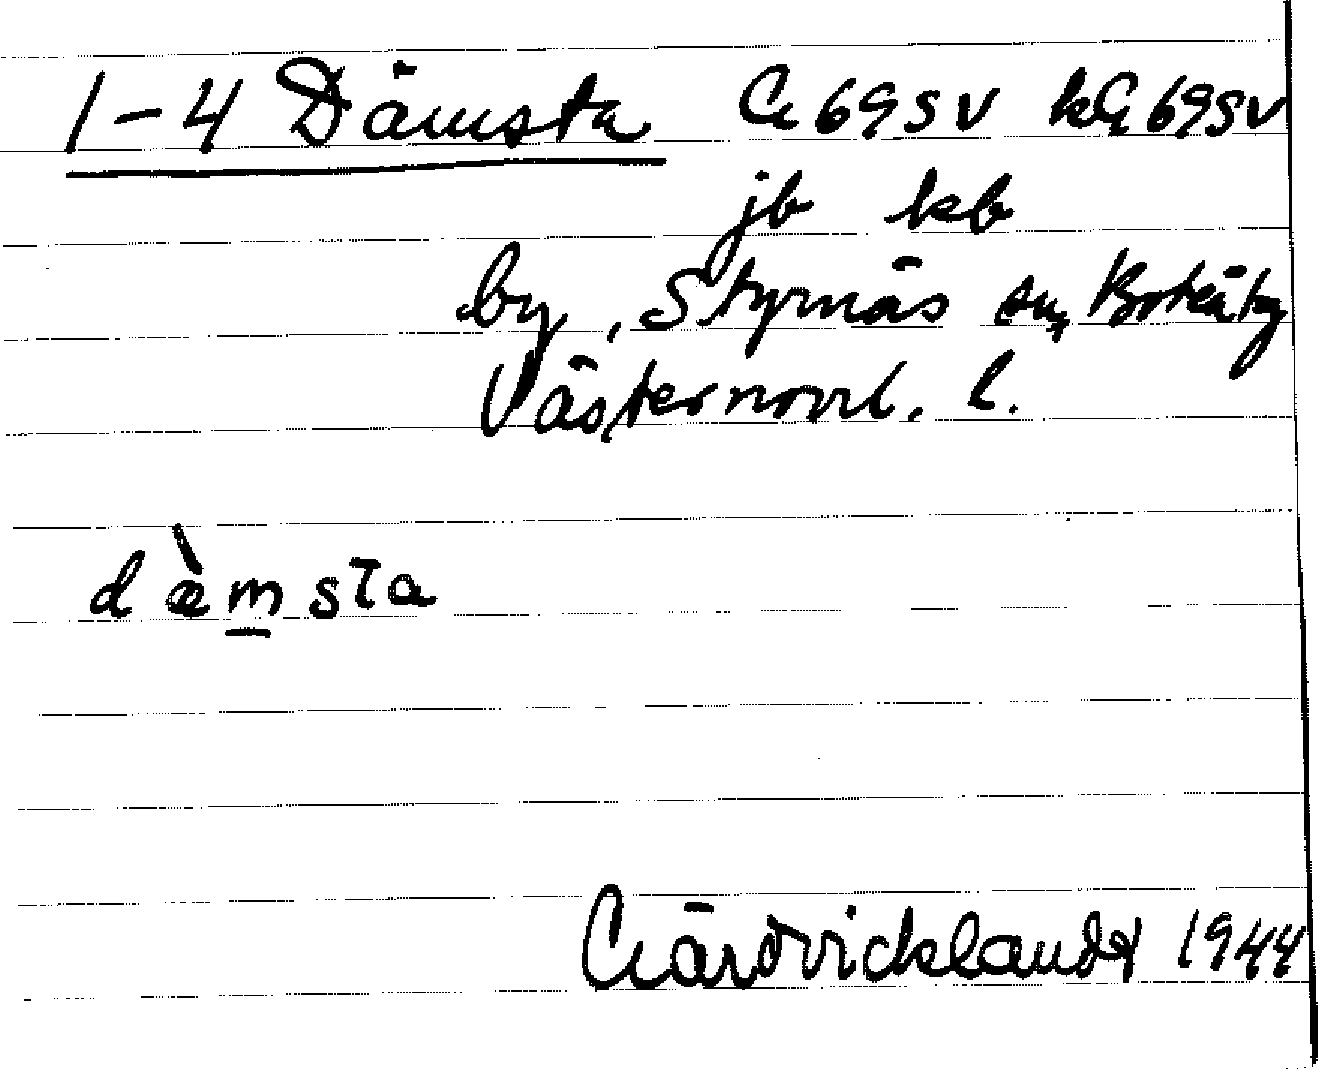 1-4 Dämsta G 69 SV kG 69 SV
jb kb
by, Styrnäs sn, Boteå tg
Västernorrl. l.
dæ̀m̲sta
Gärd Vicklandt 1944